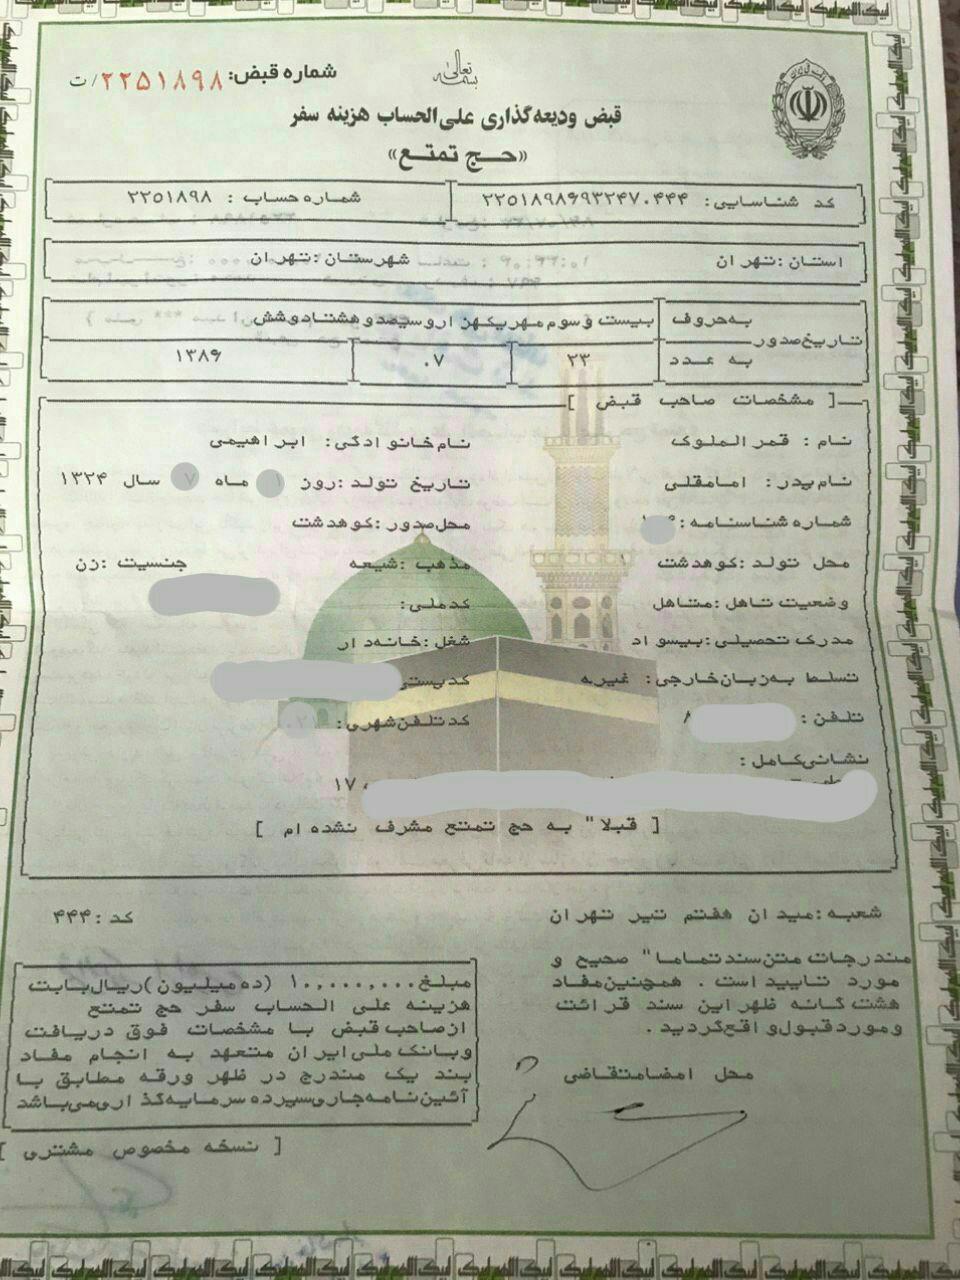 بسمه تعالی
شماره قبض: ۲۲۵۱۸۹۸/ت
قبض ودیعه گذاری علی الحساب هزینه سفر
«حـج تمتـع»
کد شناسایی: ۲۲۵۱۸۹۸۶۹۳۲۴۷۰۴۴۴ شماره حساب : ۲۲۵۱۸۹۸
استان: تهران شهرستان: تهران
تاریخ صدور به حروف بیست و سوم مهر یکهزار و سیصد و هشتاد و شش
به عدد ۲۳ ۰۷ ۱۳۸۶
[ مشخصات صاحب قبض ]
نام : قمر الملوک نام خانوادگی: ابراهیمی
نام پدر: امامقلی تاریخ تولد: روز ۱ ماه ۷ سال ۱۳۲۴
شماره شناسنامه: محل صدور: کوهدشت
محل تولد: کوهدشت مذهب: شیعه جنسیت: زن
وضعیت تاهل: متاهل کد ملی:
مدرک تحصیلی: بیسواد شغل: خانه دار
تسلط به زبان خارجی: غیره کد پستی
تلفن : کد تلفن شهری:
نشانی کامل :
۱۷
[ قبلا" به حج تمتع مشرف نشده ام ]
شعبه: میدان هفتم تیر تهران کد: ۴۴۴
مندرجات متن سند تماما" صحیح و
مورد تایید است . همچنین مفاد
هشت گانه ظهر این سند قرائت
و مورد قبول واقع گردید .
محل امضا متقاضی
مبلغ ۱۰,۰۰۰,۰۰۰ (ده میلیون) ریال بابت
هزینه علی الحساب سفر حج تمتع
از صاحب قبض با مشخصات فوق دریافت
و بانک ملی ایران متعهد به انجام مفاد
بند یک مندرج در ظهر ورقه مطابق با
آئین نامه جاری سپرده سرمایه گذاری می باشد
[ نسخه مخصوص مشتری ]